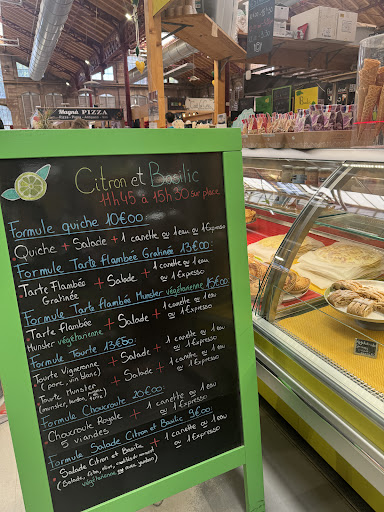 Magna PIZZA
Citron et Basilic
11h45 à 15h30 sur place
Formule quiche 10€00:
Quiche + Salade + 1 canette ou 1 eau ou 1 Expresso
Formule Tarte Flambée Gratinée 13€00:
Tarte Flambée Gratinée + Salade + 1 canette ou 1 eau ou 1 Expresso
Formule Tarte Flambée Munster végétarienne 15€00
Tarte Flambée Munster végétarienne + Salade + 1 canette ou 1 eau ou 1 Expresso
Formule Tourte 13€00:
Tourte Vigneronne (porc, vin blanc) + Salade + 1 canette ou 1 eau ou 1 Expresso
Tourte Munster + Salade + 1 canette ou 1 eau ou 1 Expresso
Formule Choucroute 20€00:
Choucroute Royale 5 viandes + 1 canette ou 1 eau ou 1 Expresso
Formule Salade Citron et Basilic 9€00:
Salade Citron et Basilic + 1 canette ou 1 eau ou 1 Expresso
végétarienne ou avec jambon)